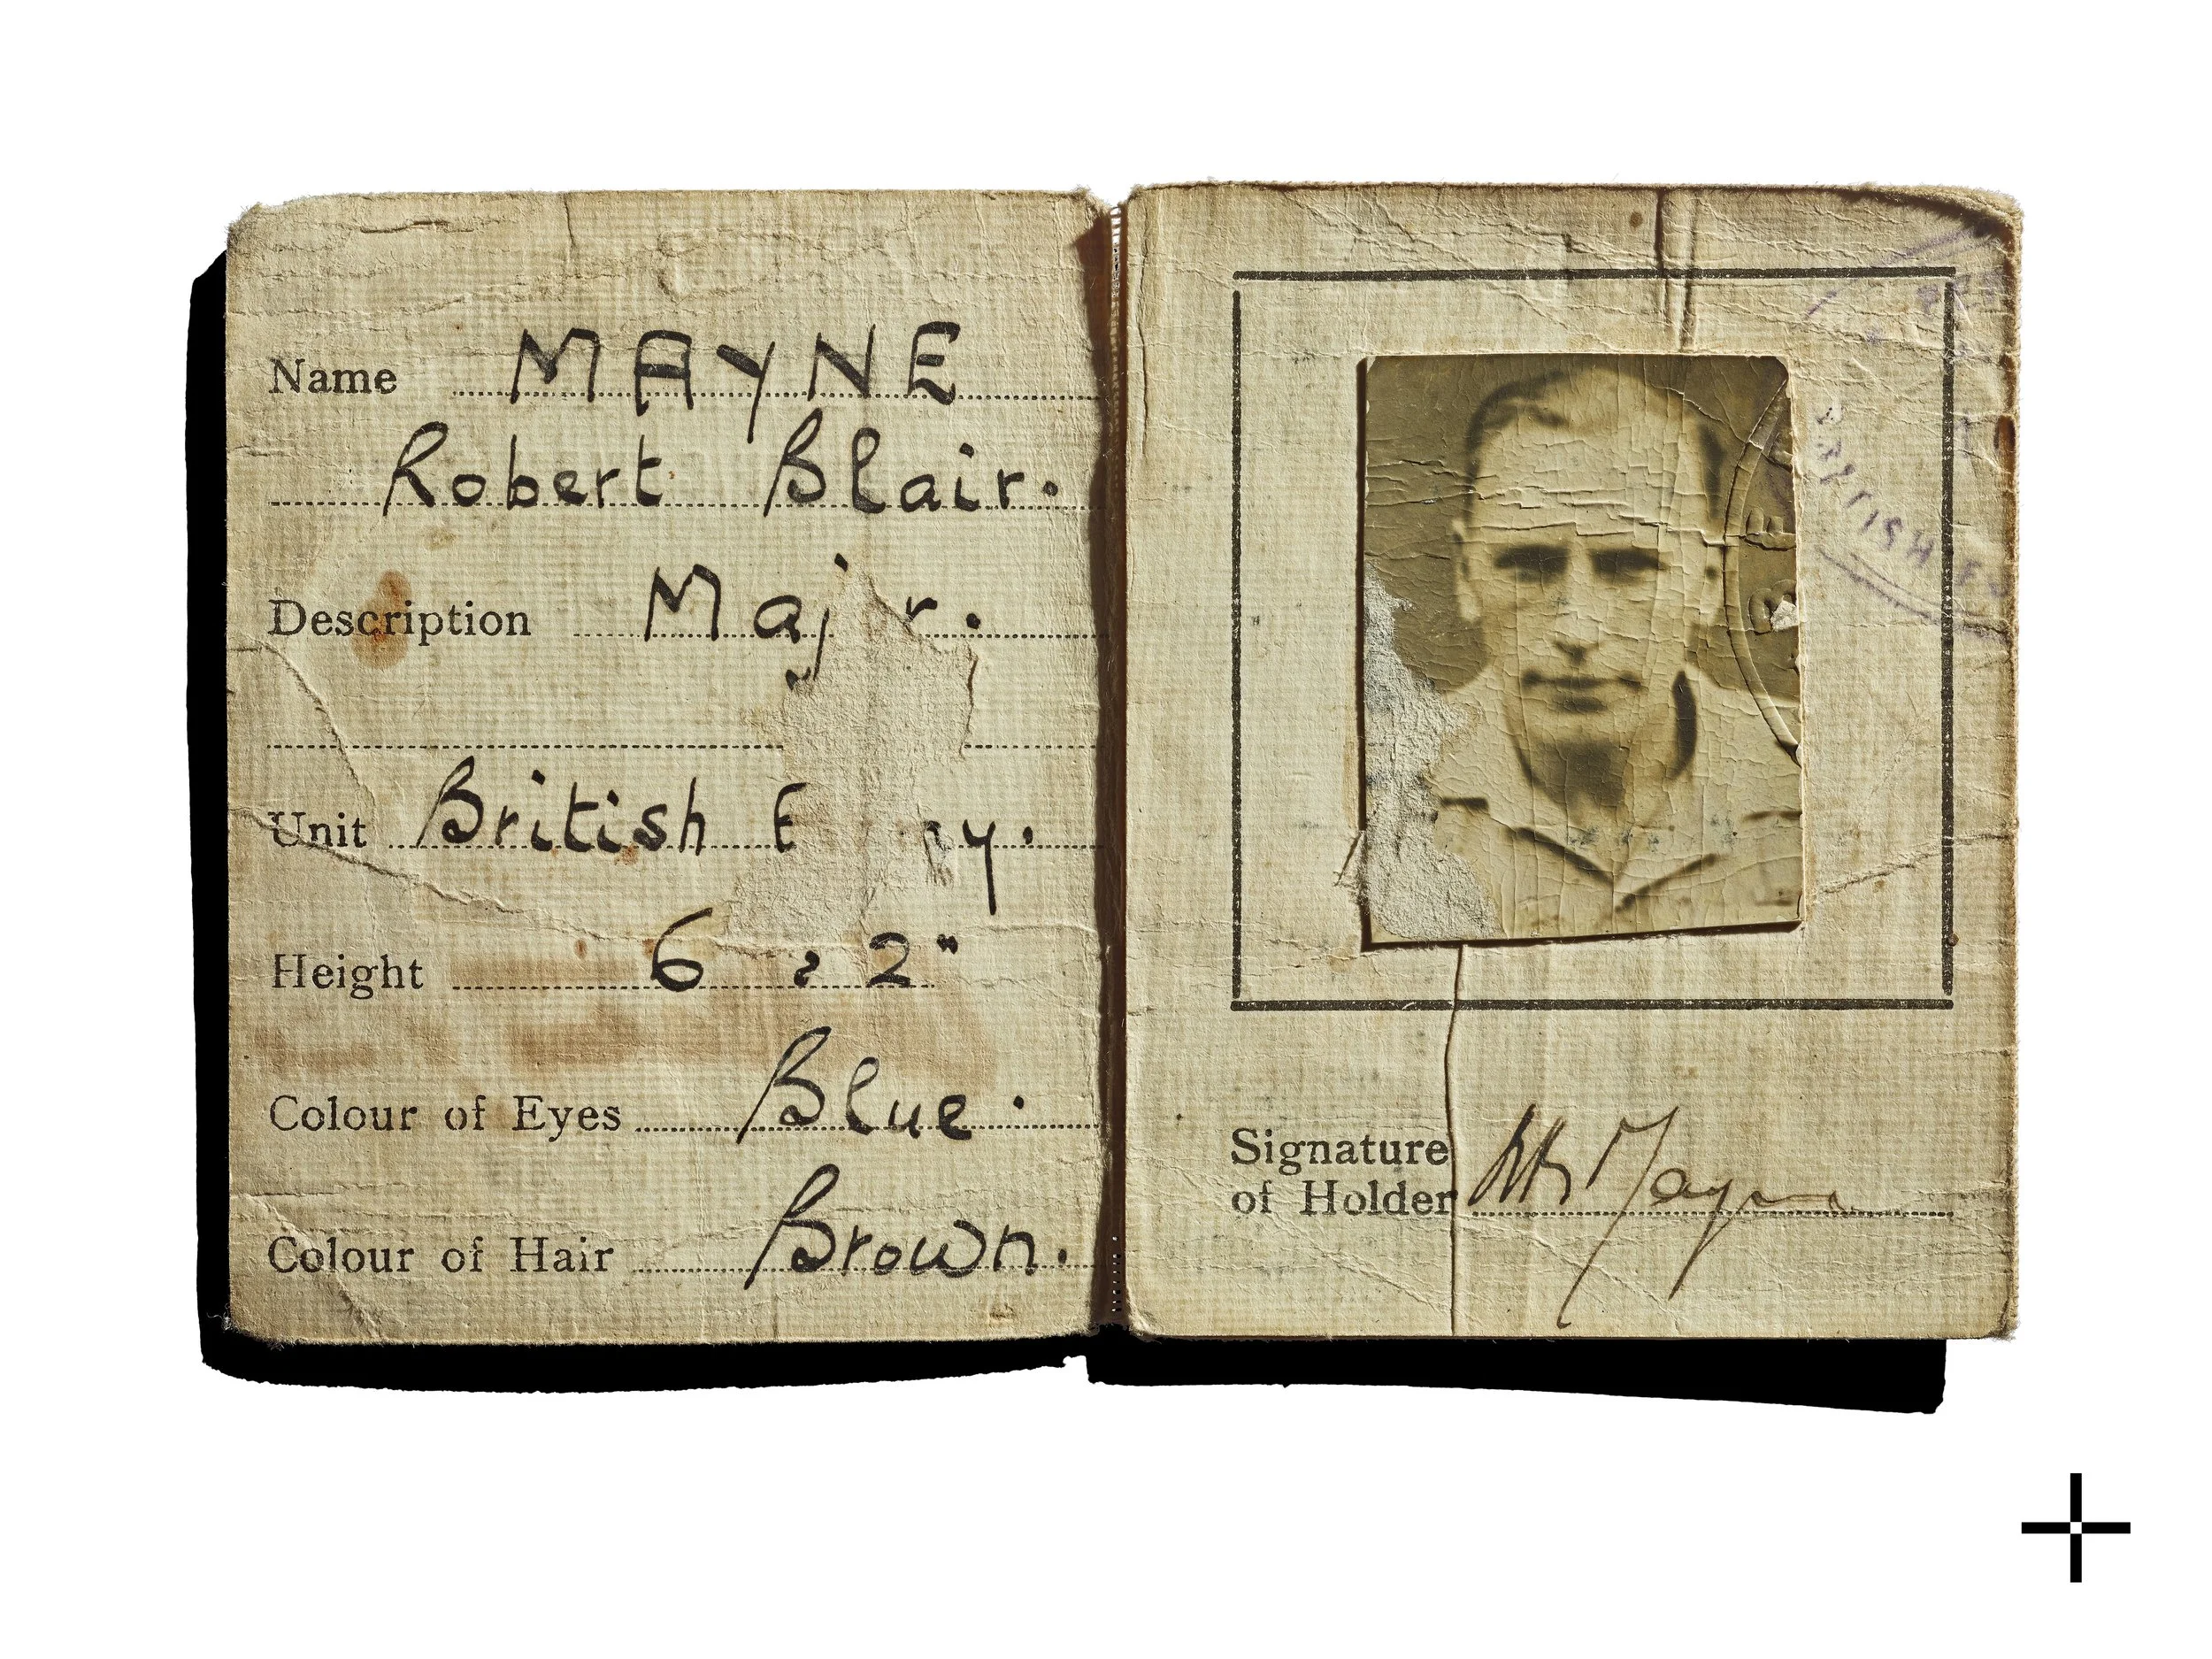 Name MAYNE
Robert Blair.
Description Maj r.
Unit British E   my.
Height 6 , 2"
Colour of Eyes Blue.
Colour of Hair Brown.
BRITISH
Signature
of Holder RB Mayne